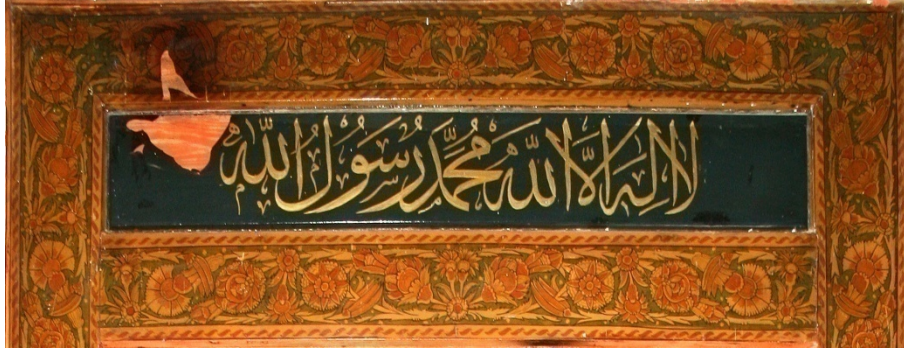 لا اله الا الله محمد رسول الله